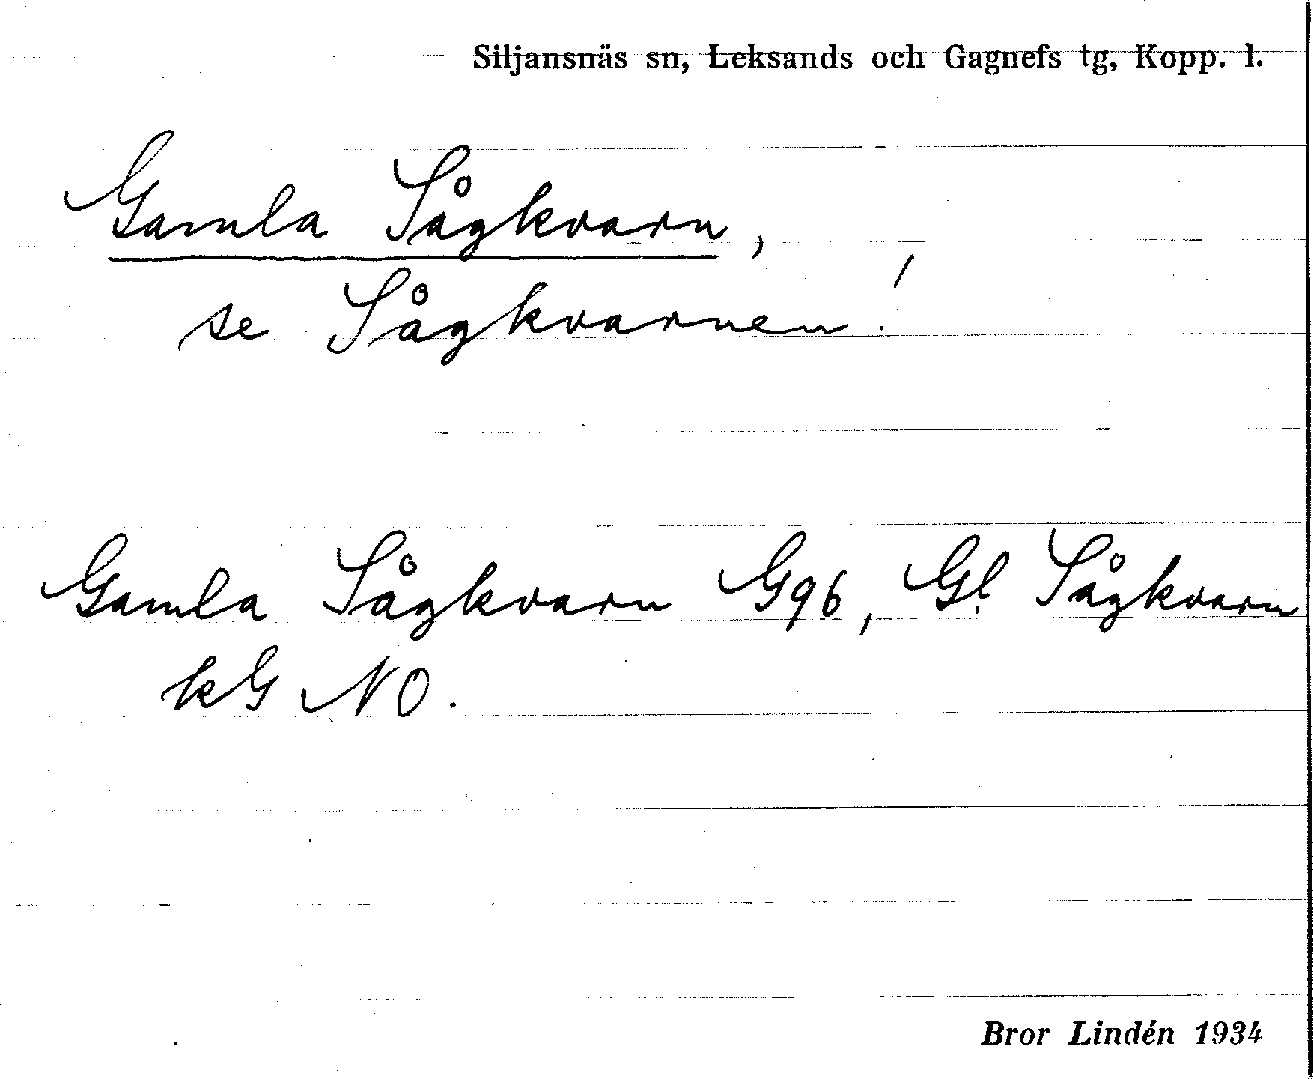 Siljansnäs sn, Leksands och Gagnefs tg, Kopp. l.
Gamla Sågkvarn,
se Sågkvarnen!
Gamla Sågkvarn G96, Gl. Sågkvarn
kG NO.
Bror Lindén 1934